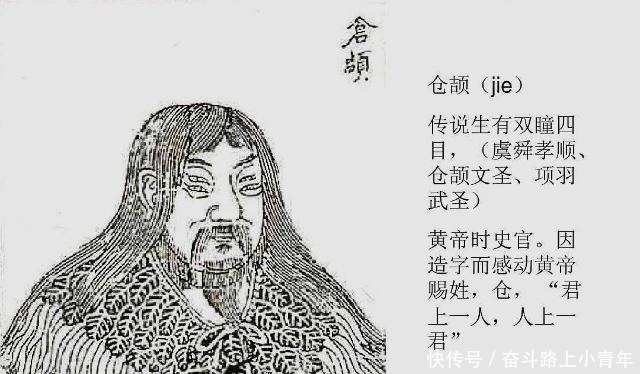 倉頡
仓颉（jie）
传说生有双瞳四
目，（虞舜孝顺、
仓颉文圣、项羽
武圣）
黄帝时史官。因
造字而感动黄帝
赐姓，仓， “君
上一人，人上一
君”
快传号／奋斗路上小青年